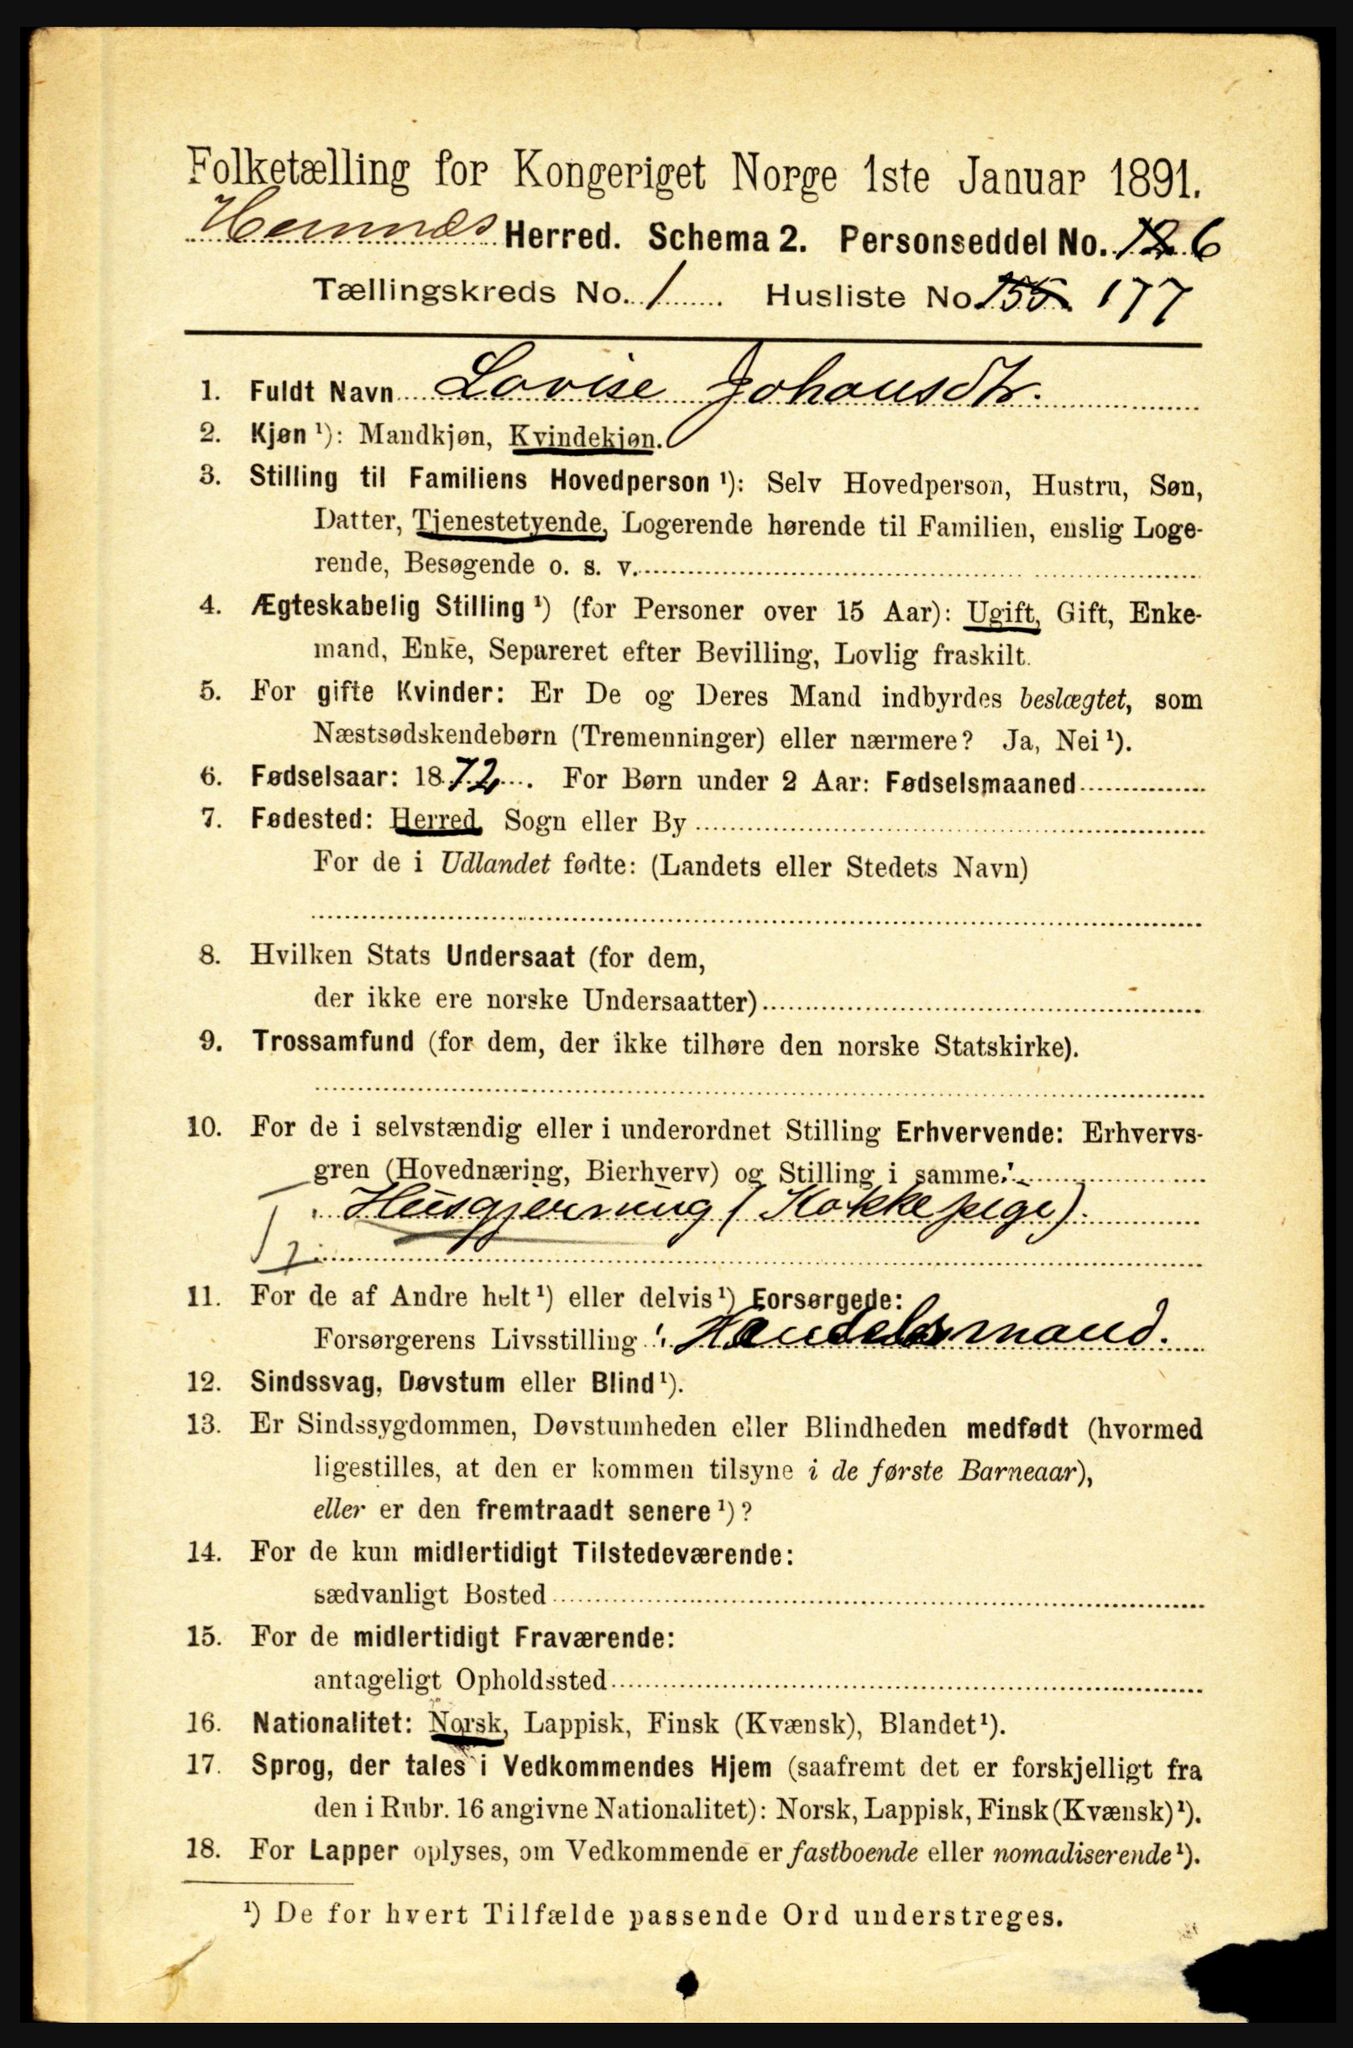 Folketælling for Kongeriget Norge 1ste Januar 1891.
Hemnæs Herred. Schema 2. Personseddel No. 126
Tællingskreds No. 1 Husliste No 155 177
1. Fuldt Navn Lovise Johansdtr.
2. Kjøn ¹): Mandkjøn, Kvindekjøn.
3. Stilling til Familiens Hovedperson ¹): Selv Hovedperson, Hustru, Søn,
Datter, Tjenestetyende, Logerende hørende til Familien, enslig Loge-
rende, Besøgende o. s. v.
4. Ægteskabelig Stilling ¹) (for Personer over 15 Aar): Ugift, Gift, Enke-
mand, Enke, Separeret efter Bevilling, Lovlig fraskilt.
5. For gifte Kvinder: Er De og Deres Mand indbyrdes beslægtet, som
Næstsødskendebørn (Tremenninger) eller nærmere? Ja, Nei ¹).
6. Fødselsaar: 1872. For Børn under 2 Aar: Fødselsmaaned
7. Fødested: Herred, Sogn eller By
For de i Udlandet fødte: (Landets eller Stedets Navn)
8. Hvilken Stats Undersaat (for dem,
der ikke ere norske Undersaatter)
9. Trossamfund (for dem, der ikke tilhøre den norske Statskirke).
10. For de i selvstændig eller i underordnet Stilling Erhvervende: Erhvervs-
gren (Hovednæring, Bierhverv) og Stilling i samme:
Husgjerning (Kokkepige).
11. For de af Andre helt ¹) eller delvis ¹) Forsørgede:
Forsørgerens Livsstilling : Handelsmand.
12. Sindssvag, Døvstum eller Blind ¹).
13. Er Sindssygdommen, Døvstumheden eller Blindheden medfødt (hvormed
ligestilles, at den er kommen tilsyne i de første Barneaar),
eller er den fremtraadt senere ¹)?
14. For de kun midlertidigt Tilstedeværende:
sædvanligt Bosted
15. For de midlertidigt Fraværende:
antageligt Opholdssted
16. Nationalitet: Norsk, Lappisk, Finsk (Kvænsk), Blandet ¹).
17. Sprog, der tales i Vedkommendes Hjem (saafremt det er forskjelligt fra
den i Rubr. 16 angivne Nationalitet): Norsk, Lappisk, Finsk (Kvænsk) ¹).
18. For Lapper oplyses, om Vedkommende er fastboende eller nomadiserende ¹).
¹) De for hvert Tilfælde passende Ord understreges.